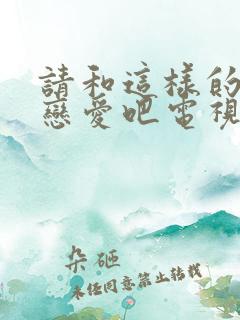 請和這樣的
戀愛吧電視
朵砸
未经同意禁止转载